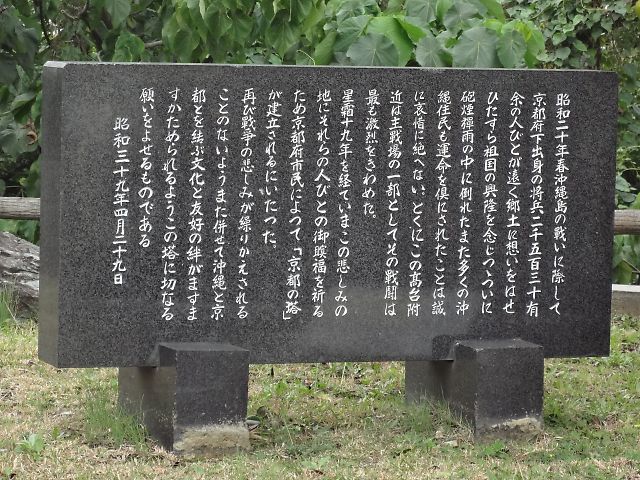 昭和二十年春沖縄島の戦いに際して
京都府下出身の将兵二千五百三十有
余の人びとが遠く郷土に想いをはせ
ひたすら祖国の興隆を念じつゝついに
砲煙弾雨の中に倒れたまた多くの沖
縄住民も運命を倶にされたことは誠
に哀惜に絶へないとくにこの高台附
近は主戦場の一部としてその戦闘は
最も激烈をきわめた。
星霜十九年を経ていまこの悲しみの
地にそれらの人びとの御冥福を祈る
ため京都府市民によって「京都の塔」
が建立されるにいたった。
再び戦争の悲しみが繰りかえされる
ことのないようまた併せて沖縄と京
都とを結ぶ文化と友好の絆がますま
すかためられるようこの塔に切なる
願いをよせるものである
昭和三十九年四月二十九日